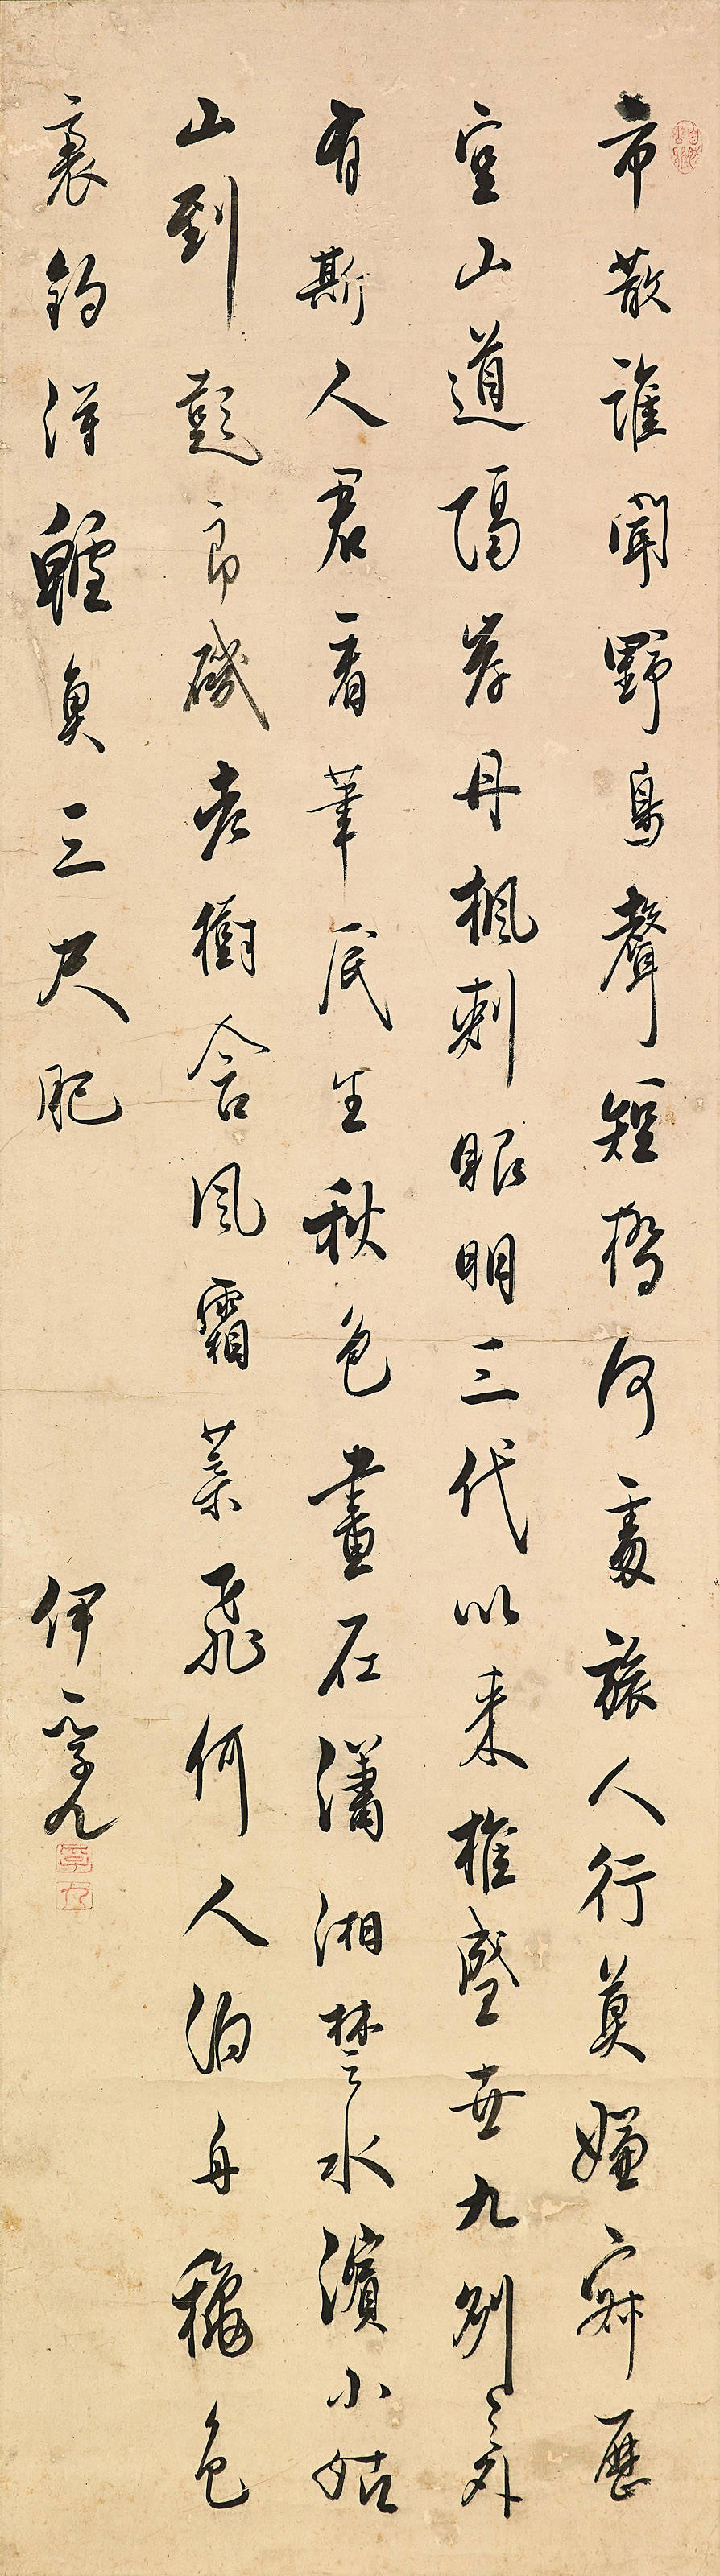 市散誰聞野鳥聲短橋何處旅人行莫嫌寂歷
空山道隔岸丹楓刺眼明三代以來推盛世九州之外
有斯人君看筆底生秋色畫在瀟湘楚水濱小姑
山到彭郎磯老樹含風霜葉飛何人泊舟穐色
裏釣得鱸魚三尺肥
伊孚九
孚
九